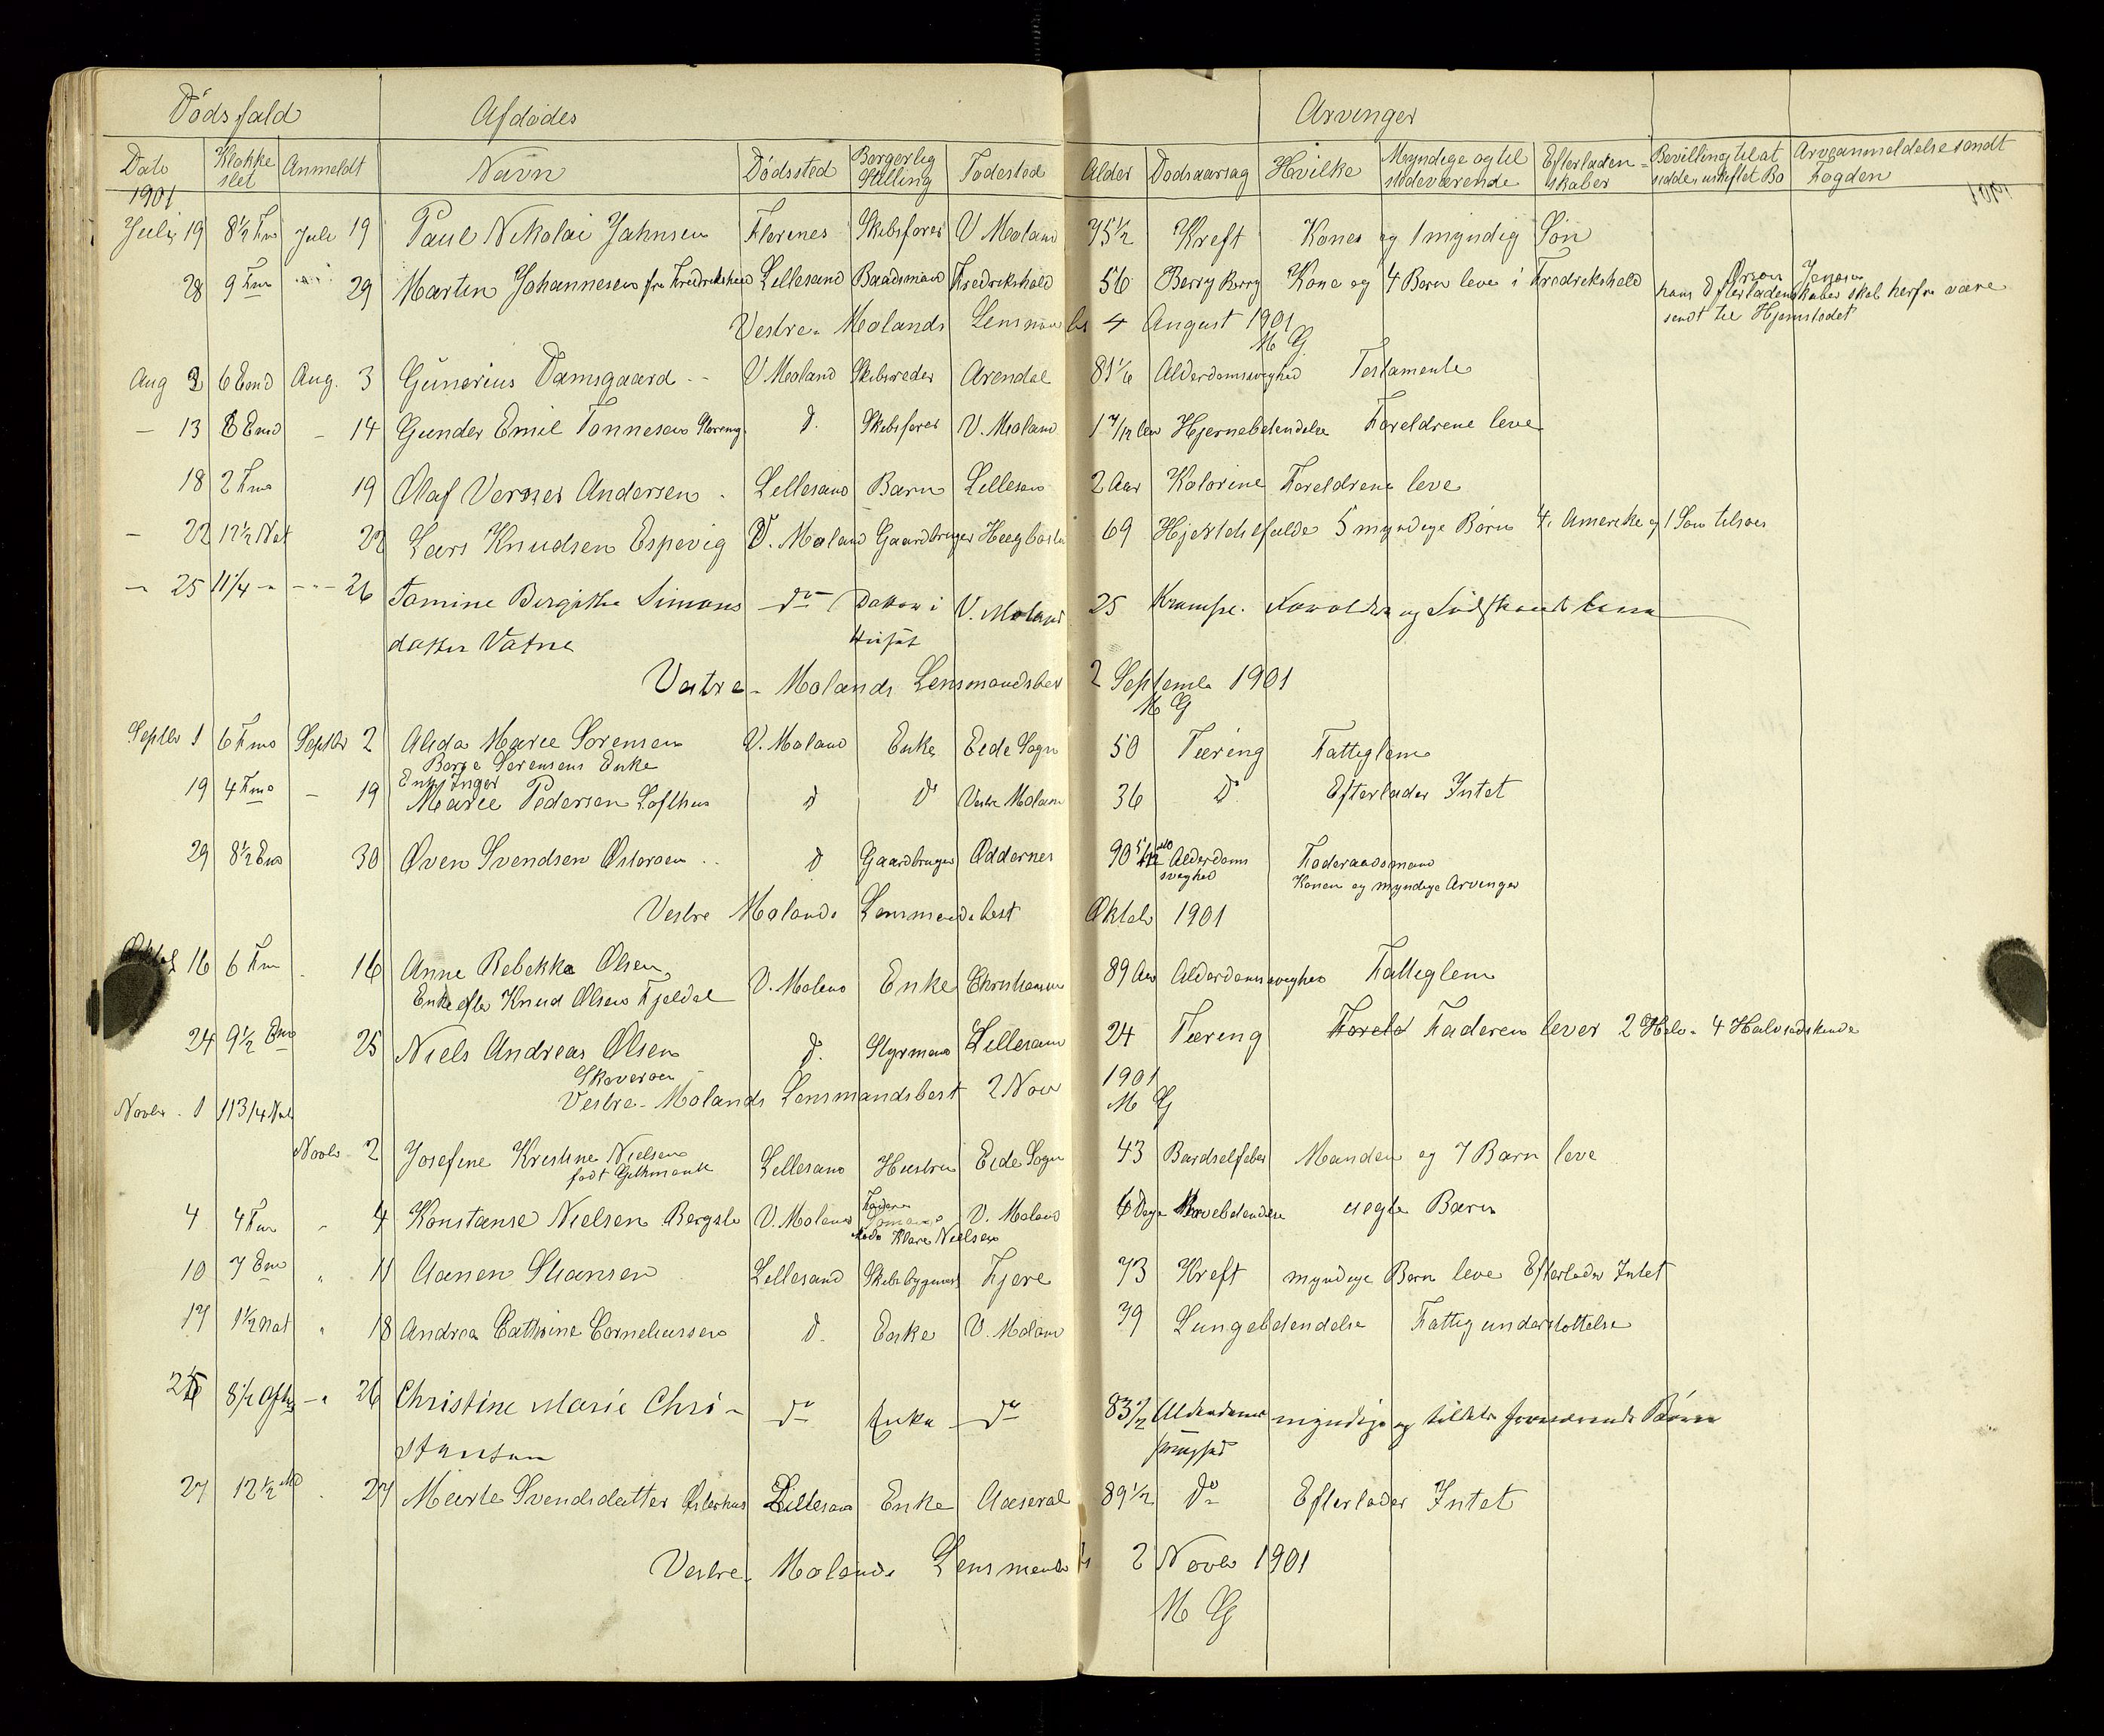 Dødsfald Afdødes Arvinger
Dato Klokke slet Anmeldt Navn Dødssted Borgerlig Stilling Fødested Alder Dødsaarsag Hvilke Myndige og til stedeværende Efterladen-skaber Bevilling til at sidde i uskiftet Bo Arveanmeldelse sendt Fogden
1901
Juli 19 8½ Fm Juli 19 Paul Nikolai Jahnsen Florenes Skibsfører V Moland 75½ Kreft Kone og 1 myndig Søn
28 9 Fm 29 Martin Johannesen fra Fredrikshald Lillesand Baadsmand Fredrikshald 56 Berry Berry Kone og 4 Børn leve i Fredrikshald
hans Efterladenskaber skal herfra være
sendt til Hjemstedet
Vestre Molands Lensmandsb 4 August 1901
M G
Aug 2 6 Emd Aug. 3 Gunerius Damsgaard V Moland Skibsreder Arendal 81 1/6 Alderdomssvaghed Testamente
— 13 8 Emd - 14 Gunder Emil Tønnesen d. Skibsfører V. Moland 1 7/12 Hjernebetendelse Foreldrene leve
18 2 Fm 19 Olaf Verner Andersen Lillesand Barn Lillesan 2 Aar Kolorine Foreldrene leve
— 22 12½ Nat 22 Lars Knudsen Espevig V. Moland Gaardbruger 69 Hjertetilfelde 5 myndige Børn 4 i Amerike og 1 Søn tilsøes
— 25 11¼ — 26 Tomine Birgithe Simons do Datter i V. Moland 25 Krampe. Forældre og Sødskende leve
datter Vatne Huset
Vestre - Molands Lensmandsbest 2 Septembr 1901
M G
Septbr 1 6 Fm Septbr 2 Alida Marie Sørensen V. Moland Enke Eide Sogn 50 Tæring Fattiglem
Børre Sørensens Enke
Enke Inger
19 4 Fm — 19 Marie Pedersen Lofthus d do Vestre Moland 36 do Efterlader Intet
29 8½ Em 30 Oven Svendsen Osteroen d Gaardbruger Oddernes 90 5/12 Alderdoms svaghed Føderaadsmand
Konen og myndige Arvinger
Vestre Molands Lensmandsbest Oktob 1901
16 6 Fm 16 Anne Rebekka Olsen V. Moland Enke Christiansan 89 Aar Alderdomssvaghed Fattiglem
Enke efter Knud Olsen Fjeldal
24 9½ Em 25 Niels Andreas Olsen d. Styrmand Lillesand 24 Tæring Foreld Faderen lever 2 Hel- 4 Halvsødskende
Skoveroen
Vestre - Molands Lensmandsbest 2 Nov 1901
M G
Novbr. 1 11 3/4 Nat
Novbr. 2 Josefine Kristine Nielsen Lillesand Hustru Eide Sogn 43 Barselfeber Manden og 7 Børn leve
født
4 4 Fm 4 Konstanse Nielsen Bergsli V. Moland Faderen V. Moland 6 Dage uegte Barn
Moder Klara Nielsen
10 7 Em 11 Aanen Stiansen Lillesand Skibsbygmest Fjere 73 Kreft myndige Børn leve Efterlader Intet
17 1½ nat 18 Andrea Cathrine Corneliussen d. Enke V. Moland 79 Lungebetendelse Fattigunderstøttelse
8½ Aften 26 Christine Marie Chri- do Enke do 83½ Alderdoms myndige og tilstede værende Børn
stensen svaghed
27 12½ Md 27 Marte Svendsdatter Osterhus Lillesand Enke Aaseral 89½ do Efterlader Intet
Vestre - Molands Lensmandsb 2 Novbr 1901
M G